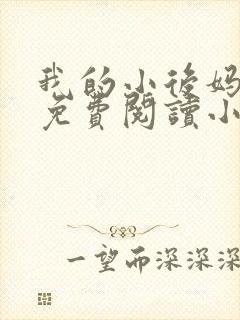 我的小後妈
免費閱讀小
一望而深深深